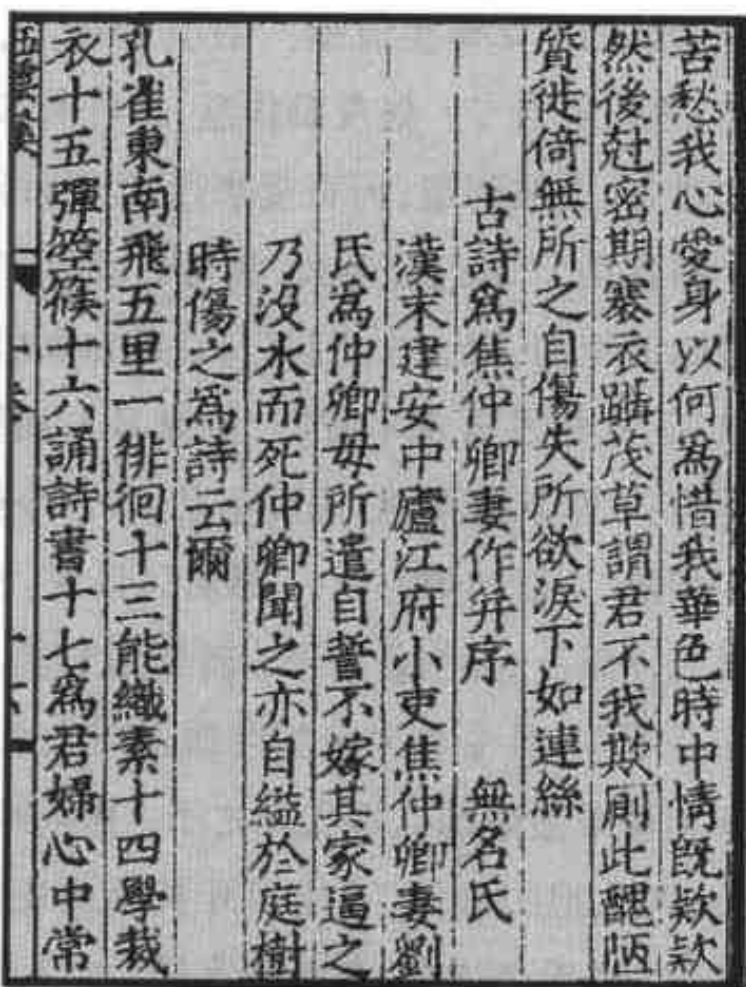 苦愁我心愛身以何為惜我華色時中情旣欵欵
然後尅密期褰衣躡茂草謂君不我欺厠此醜陋
質徙倚無所之自傷失所欲淚下如連絲
古詩爲焦仲卿妻作并序 無名氏
漢末建安中廬江府小吏焦仲卿妻劉
氏爲仲卿母所遣自誓不嫁其家逼之
乃沒水而死仲卿聞之亦自縊於庭樹
時傷之爲詩云爾
孔雀東南飛五里一徘徊十三能織素十四學裁
衣十五彈箜篌十六誦詩書十七爲君婦心中常